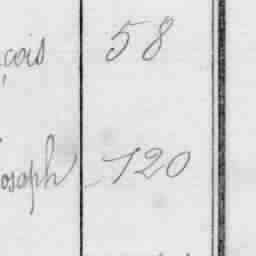 çois 58
Joseph 120